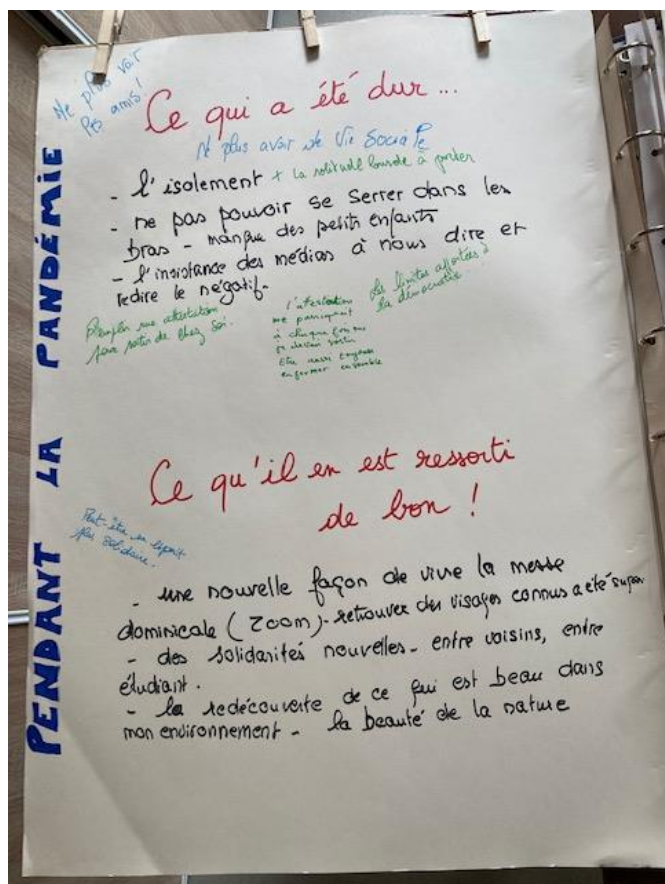 PENDANT LA PANDÉMIE
Ne plus voir
les amis!
Ce qui a été dur...
Ne plus avoir de Vie Sociale
- l'isolement + La solitude lourde à porter
- ne pas pouvoir se serrer dans les
bras - manque des petits enfants
- l'insistance des médias à nous dire et
redire le négatif.
Remplir une attestation
pour sortir de chez soi.
l'attestation
me paniquait
à chaque fois que
je devais sortir
Etre aussi toujours
enfermer ensemble
Les limites apportées à
la démocratie.
Ce qu'il en est ressorti
de bon !
Peut-être un esprit
plus solidaire.
- une nouvelle façon de vivre la messe
dominicale (Zoom) - retrouver des visages connus a été super
- des solidarités nouvelles - entre voisins, entre
étudiant.
- la redécouverte de ce qui est beau dans
mon environnement - la beauté de la nature